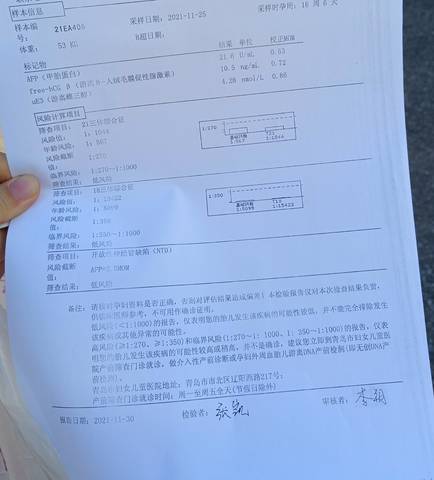 样本信息
样本编号: 21EA405 采样日期: 2021-11-25 采样时孕周: 18 周 6 天
体重: 53 KG B超日期:
标记物 结果 单位 校正MOM
AFP(甲胎蛋白) 21.6 U/mL 0.53
free-hCG β(游离β-人绒毛膜促性腺激素) 10.5 ng/mL 0.72
uE3(游离雌三醇) 4.28 nmol/L 0.86
风险计算项目
筛查项目: 21三体综合征
风险值: 1: 1044
年龄风险: 1: 867
风险截断值: 1:270
临界风险: 1:270~1:1000
筛查结果: 低风险
1:270
筛查项目: 18三体综合征
风险值: 1: 15422
年龄风险:
风险截断值: 1:350
临界风险: 1:350~1:1000
筛查结果: 低风险
1:350
T18
1:15422
筛查项目: 开放性神经管缺陷(NTD)
风险截断值:
筛查结果: 低风险
备注: 请核对孕妇资料是否正确,否则对评估结果造成偏差!本检验报告仅对本次检查结果负责,
供临床医师参考,不可用作确诊证明。
低风险(<1:1000)的报告,仅表明您的胎儿发生该疾病的可能性较低,并不能完全排除发生
该疾病或其他异常的可能性。
高风险(≥1:270、≥1:350)和临界风险(1:270~1:1000、1:350~1:1000)的报告,仅表
明您的胎儿发生该疾病的可能性较高或稍高,并不是确诊,建议您立即到青岛市妇女儿童医
院产前筛查门诊就诊,做介入性产前诊断或孕妇外周血胎儿游离DNA产前检测(即无创DNA产
前检测)。
青岛市妇女儿童医院地址: 青岛市市北区辽阳西路217号;
产前筛查门诊就诊时间: 周一至周五全天(节假日除外)
报告日期: 2021-11-30 检验者: 审核者: